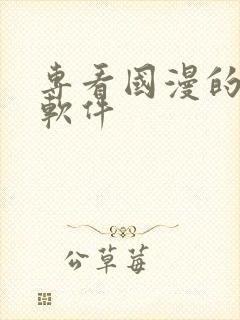 專看國漫的
軟件
公草莓